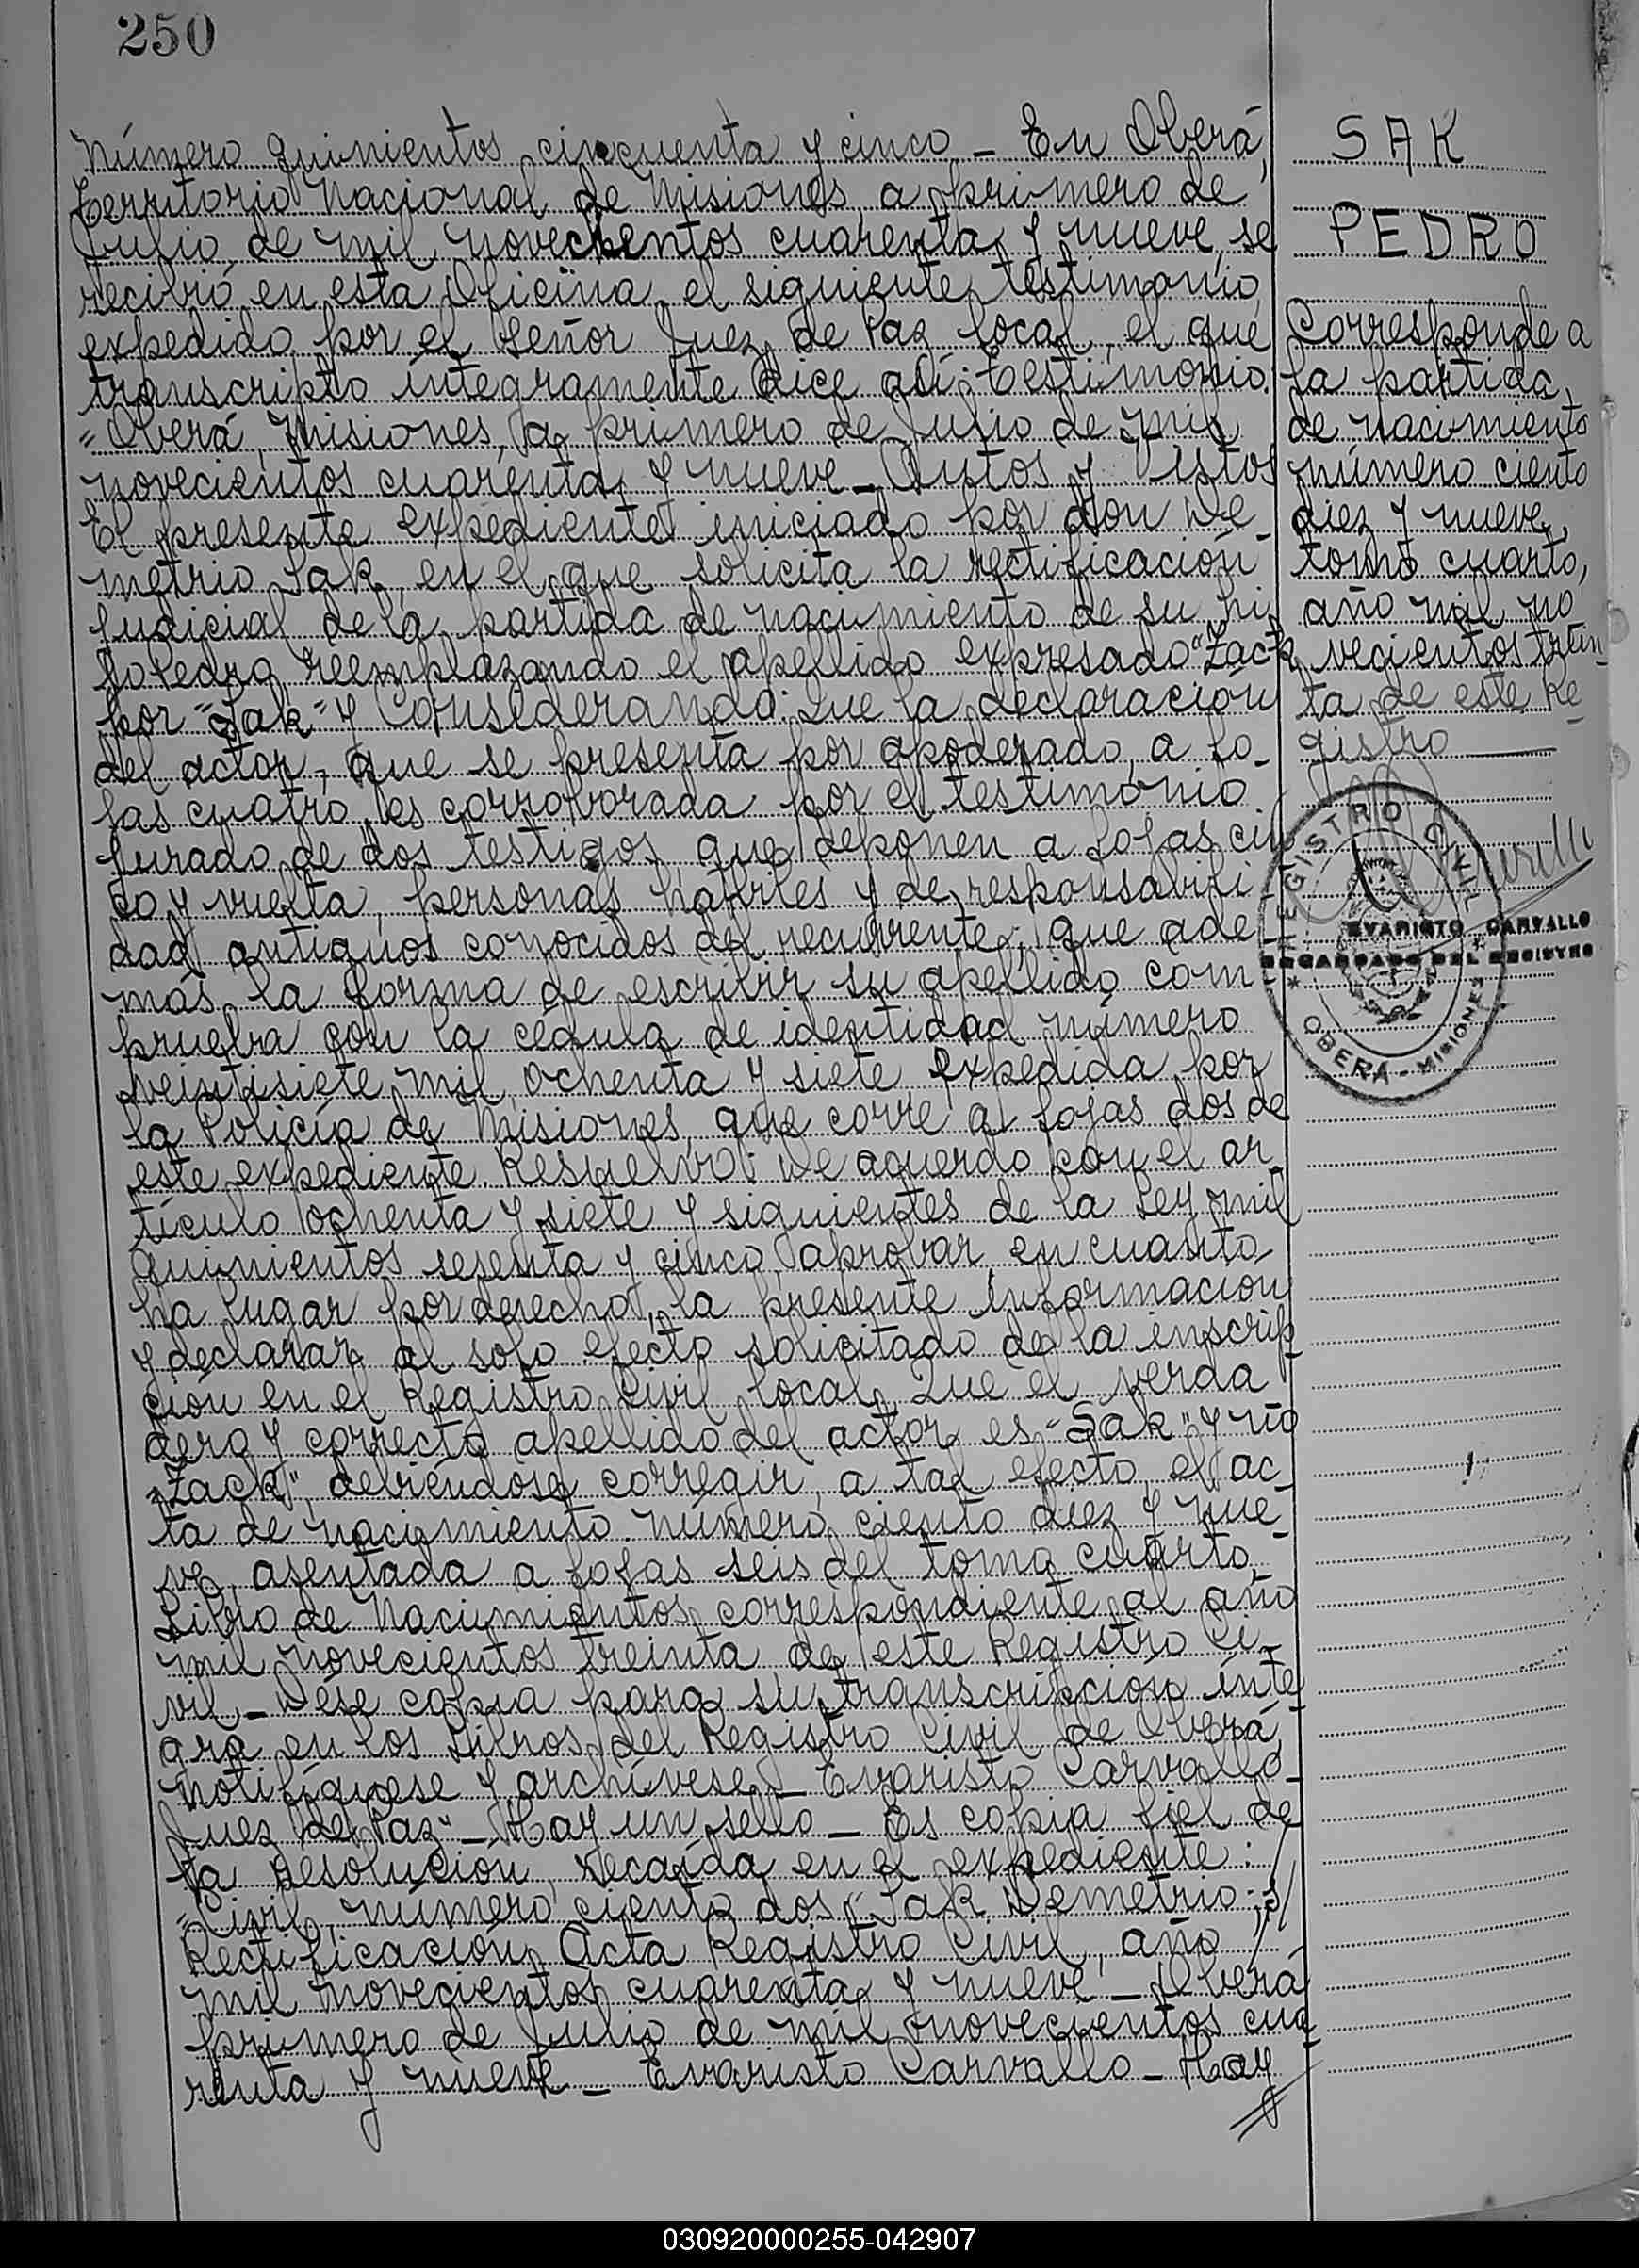 250
Número quinientos cincuenta y cinco - En Oberá,
territorio Nacional de Misiones, a primero de
Julio de mil novecientos cuarenta y nueve, se
recibió en esta Oficina el siguiente testimonio
expedido por el Señor Juez de Paz local, el que
transcripto íntegramente dice así: Testimonio:
"Oberá, Misiones, a primero de Julio de mil
novecientos cuarenta y nueve - Autos y Vistos
El presente expediente iniciado por don De-
metrio Sak, en el que solicita la rectificación
judicial de la partida de nacimiento de su hi
jo Pedro, reemplazando el apellido expresado "Zack
por "Sak" y Considerando: Que la declaración
del actor, que se presenta por apoderado, a fo-
jas cuatro, es corroborada por el testimonio
jurado de dos testigos que deponen a fojas cin
co y vuelta, personas hábiles y de responsabili-
dad, antiguos conocidos del recurrente; que ade
más la forma de escribir su apellido com-
prueba con la cédula de identidad número
veintisiete mil ochenta y siete expedida por
la Policía de Misiones, que corre a fojas dos de
este expediente. Resuelvo: De acuerdo con el ar
tículo ochenta y siete y siguientes de la Ley mil
quinientos sesenta y cinco, aprobar, en cuanto
ha lugar por derecho, la presente información
y declarar al solo efecto solicitado de la inscrip
ción en el Registro Civil local, Que el verda
dero y correcto apellido del actor es "Sak" y no
"Zack", debiéndose corregir, a tal efecto, el ac
ta de nacimiento número ciento diez y nue-
ve, asentada a fojas seis del tomo cuarto,
Libro de Nacimientos correspondiente al año
mil novecientos treinta, de este Registro Ci-
vil - Dése copia para su transcripción ínte
gra en los Libros del Registro Civil de Oberá,
notifíquese y archívese - Evaristo Carvallo -
Juez de Paz" - Hay un sello - Es copia fiel de
la resolución, recaída en el expediente:
"Civil, número ciento dos, "Sak Demetrio; s/
Rectificación Acta Registro Civil, año
mil novecientos cuarenta y nueve - Oberá
primero de Julio de mil novecientos cua
renta y nueve - Evaristo Carvallo - Hay
SAK
PEDRO
Corresponde a
la partida
de nacimiento
número ciento
diez y nueve,
tomo cuarto,
año mil no
vecientos trein-
ta de este Re
gistro
REGISTRO CIVIL
EVARISTO CARVALLO
ENCARGADO DEL REGISTRO
OBERÁ - MISIONES
030920000255-042907